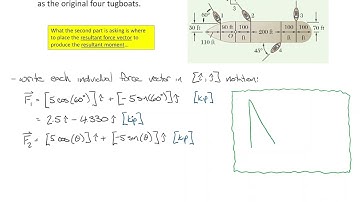 as the original four tugboats.
What the second part is asking is where
to place the resultant force vector to
produce the resultant moment.
60°
1
2
3
50 ft
90 ft
100 ft
200 ft
100 ft
70 ft
O
110 ft
45°
4
- write each individual force vector in [î, ĵ] notation:
F⃗₁ = [5cos(60°)]î + [-5sin(60°)]ĵ [kip]
= 2.5î - 4.330ĵ [kip]
F⃗₂ = [5cos(θ)]î + [-5sin(θ)]ĵ [kip]